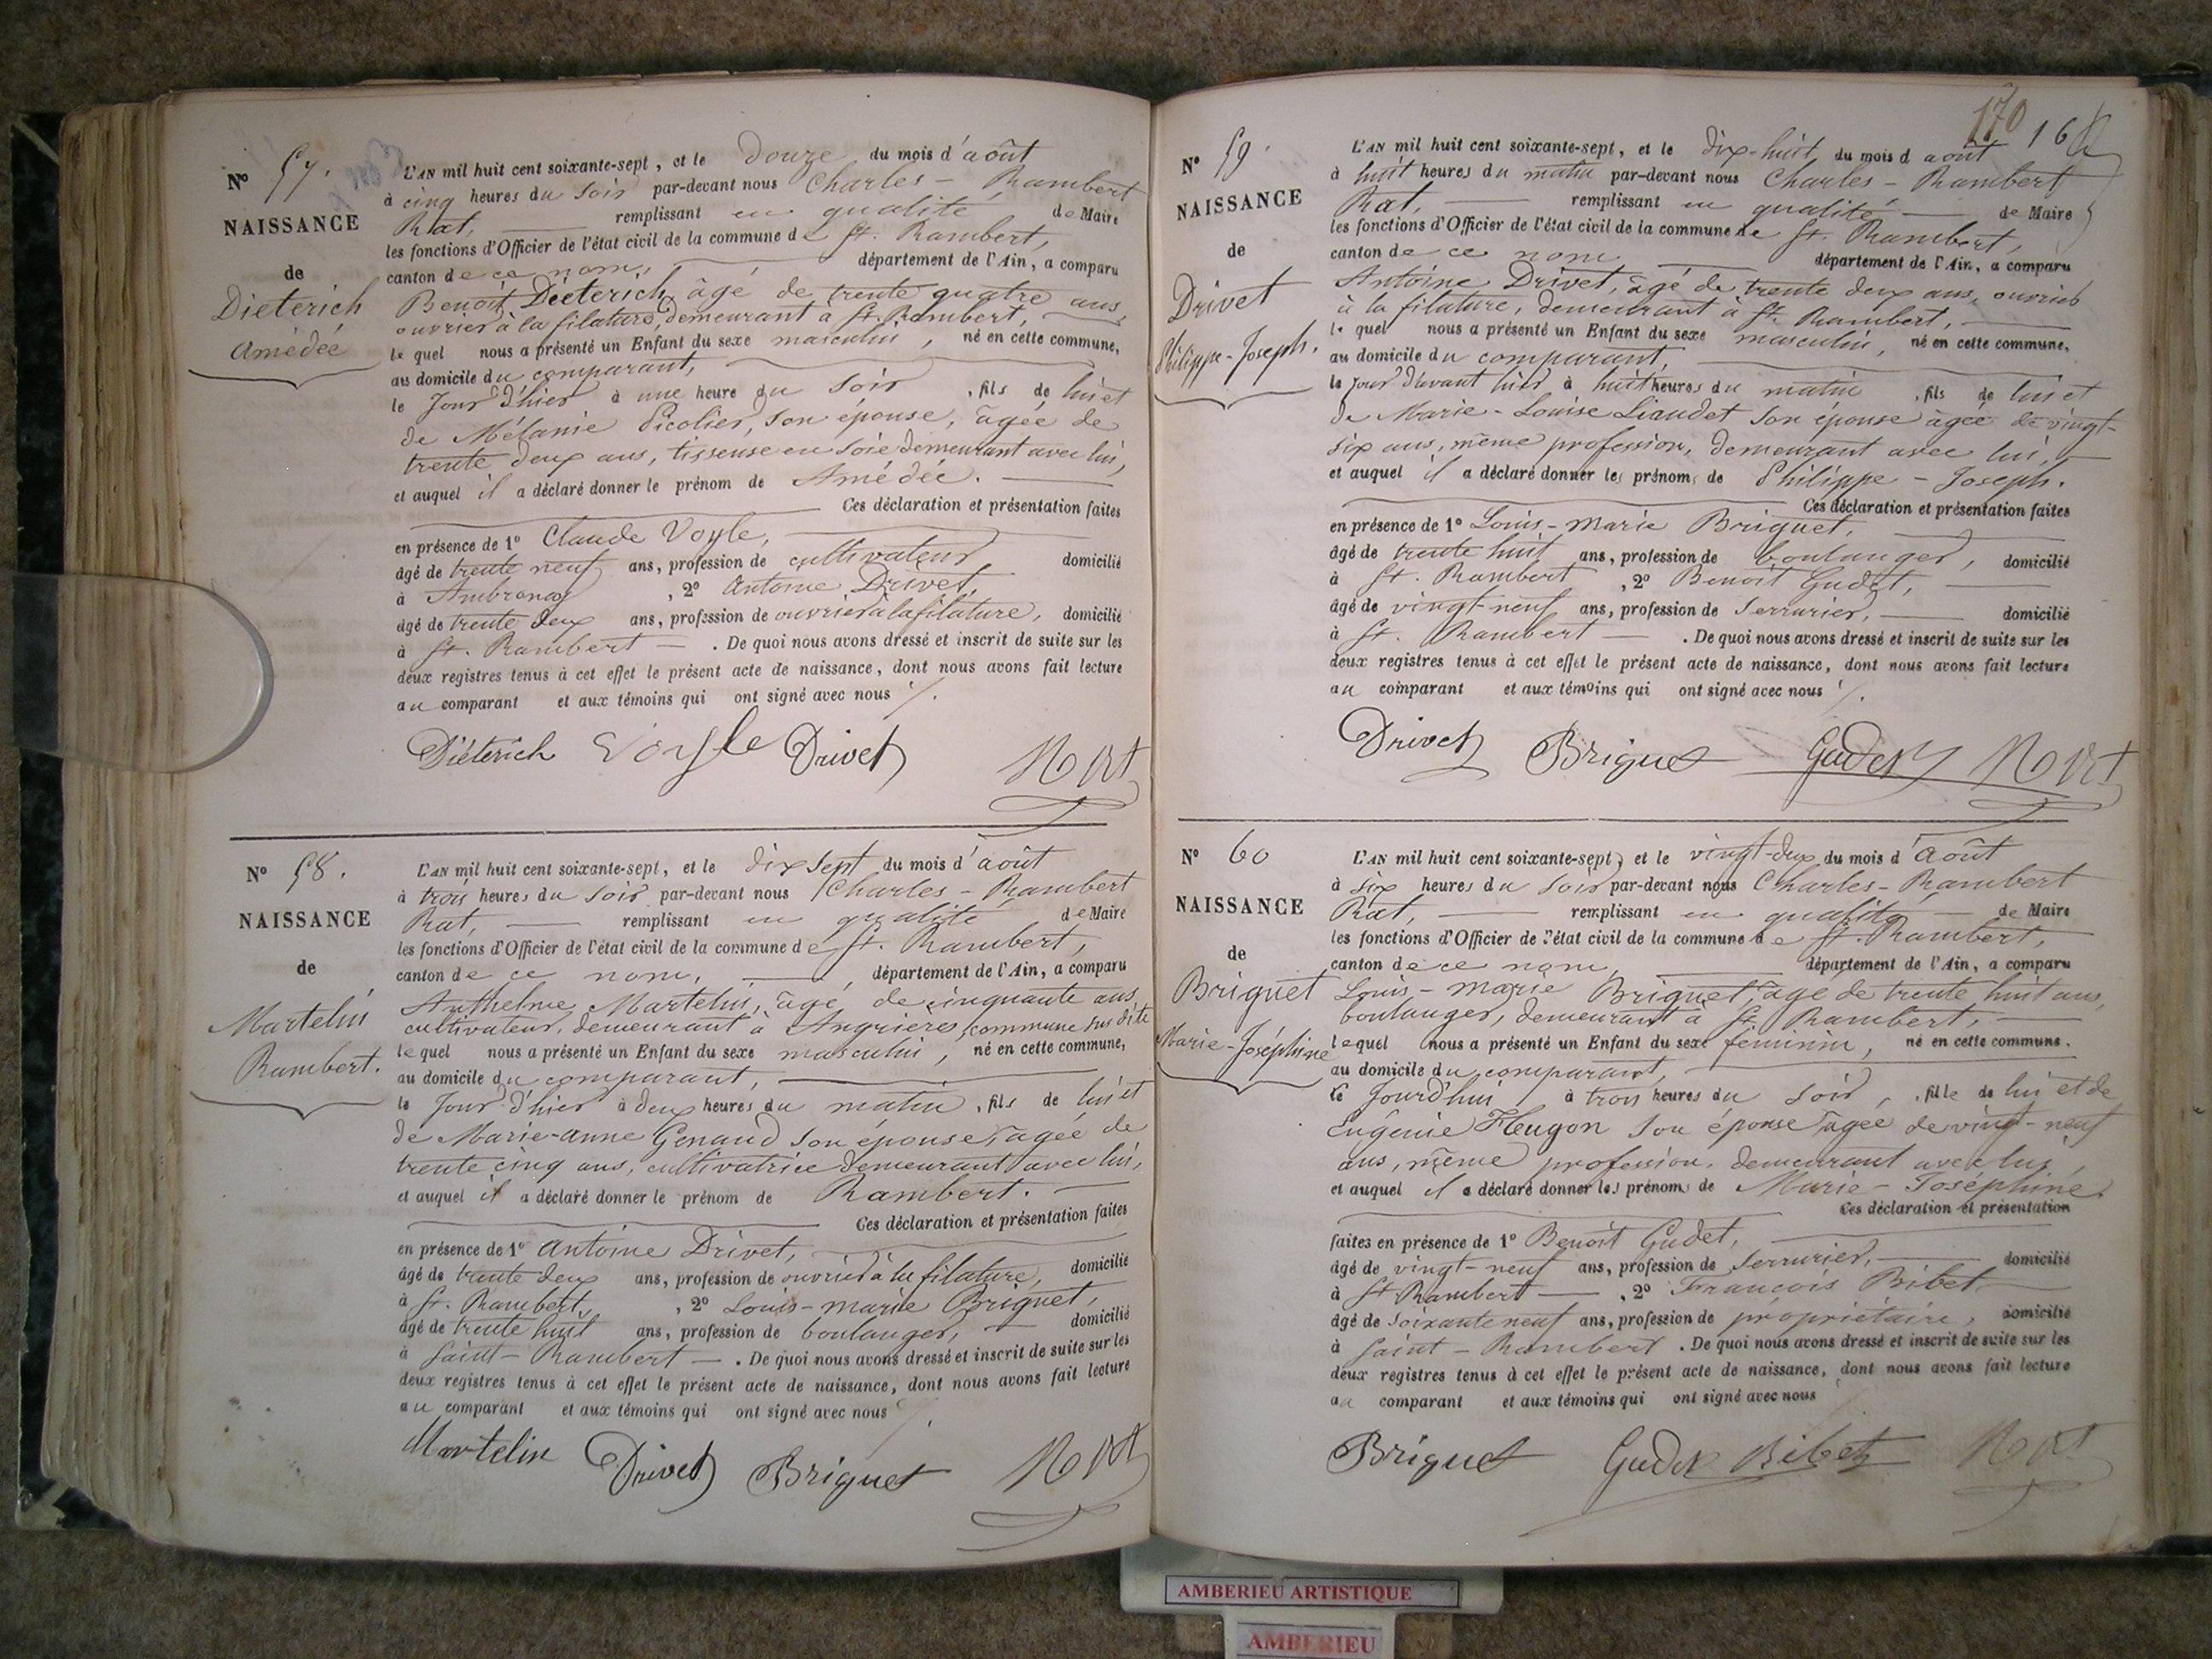 N° 57.
NAISSANCE
de
Dieterich
Amédée
L'AN mil huit cent soixante-sept, et le douze du mois d'août
à cinq heures du soir par-devant nous Charles-Rambert
Rat, remplissant en qualité de Maire
les fonctions d'Officier de l'état civil de la commune de St. Rambert,
canton de ce nom, département de l'Ain, a comparu
Benoit Dieterich, âgé de trente quatre ans,
ouvrier à la filature, demeurant à St. Rambert,
lequel nous a présenté un Enfant du sexe masculin, né en cette commune,
au domicile du comparant,
le jour d'hier à une heure du soir, fils de lui et
de Mélanie Picolier, son épouse, âgée de
trente deux ans, tisseuse en soie demeurant avec lui,
et auquel il a déclaré donner le prénom de Amédée.
Ces déclaration et présentation faites
en présence de 1° Claude Voyle,
âgé de trente neuf ans, profession de cultivateur domicilié
à Ambronay, 2° Antoine Drivet,
âgé de trente deux ans, profession de ouvrier à la filature, domicilié
à St. Rambert. De quoi nous avons dressé et inscrit de suite sur les
deux registres tenus à cet effet le présent acte de naissance, dont nous avons fait lecture
au comparant et aux témoins qui ont signé avec nous
Diéterich Voyle Drivet Rat
N° 58.
NAISSANCE
de
Martelin
Rambert.
L'AN mil huit cent soixante-sept, et le dix sept du mois d'août
à trois heures du soir par-devant nous Charles-Rambert
Rat, remplissant en qualité de Maire
les fonctions d'Officier de l'état civil de la commune de St. Rambert,
canton de ce nom, département de l'Ain, a comparu
Anthelme Martelin, âgé de cinquante ans
cultivateur, demeurant à Angrières, commune sus dite
lequel nous a présenté un Enfant du sexe masculin, né en cette commune,
au domicile du comparant,
le jour d'hier à deux heures du matin, fils de lui et
de Marie-Anne Genaud son épouse, âgée de
trente cinq ans, cultivatrice demeurant avec lui,
et auquel il a déclaré donner le prénom de Rambert.
Ces déclaration et présentation faites
en présence de 1° Antoine Drivet,
âgé de trente deux ans, profession de ouvrier à la filature, domicilié
à St. Rambert, 2° Louis-Marie Briguet,
âgé de trente huit ans, profession de boulanger, domicilié
à Saint-Rambert. De quoi nous avons dressé et inscrit de suite sur les
deux registres tenus à cet effet le présent acte de naissance, dont nous avons fait lecture
au comparant et aux témoins qui ont signé avec nous
Martelin Drivet Briguet Rat
170 16
N° 59.
NAISSANCE
de
Drivet
Philippe-Joseph.
L'AN mil huit cent soixante-sept, et le dix-huit du mois d août
à huit heures du matin par-devant nous Charles-Rambert
Rat, remplissant en qualité de Maire
les fonctions d'Officier de l'état civil de la commune de St. Rambert,
canton de ce nom département de l'Ain, a comparu
Antoine Drivet, âgé de trente deux ans, ouvrier
à la filature, demeurant à St. Rambert,
lequel nous a présenté un Enfant du sexe masculin, né en cette commune,
au domicile du comparant,
le jour d'avant hier à huit heures du matin, fils de lui et
de Marie-Louise Liaudet son épouse âgée de vingt-
six ans, même profession, demeurant avec lui,
et auquel il a déclaré donner les prénoms de Philippe-Joseph.
Ces déclaration et présentation faites
en présence de 1° Louis-Marie Briguet,
âgé de trente huit ans, profession de boulanger, domicilié
à St. Rambert, 2° Benoit Gudet,
âgé de vingt-neuf ans, profession de serrurier, domicilié
à St. Rambert. De quoi nous avons dressé et inscrit de suite sur les
deux registres tenus à cet effet le présent acte de naissance, dont nous avons fait lecture
au comparant et aux témoins qui ont signé avec nous
Drivet Briguet Gudet Rat
N° 60
NAISSANCE
de
Briguet
Marie-Joséphine
L'AN mil huit cent soixante-sept, et le vingt-deux du mois d'août
à six heures du soir par-devant nous Charles-Rambert
Rat, remplissant en qualité de Maire
les fonctions d'Officier de l'état civil de la commune de St. Rambert,
canton de ce nom, département de l'Ain, a comparu
Louis-Marie Briguet, âgé de trente huit ans,
boulanger, demeurant à St. Rambert,
lequel nous a présenté un Enfant du sexe féminin, né en cette commune.
au domicile du comparant,
le jourd'hui à trois heures du soir, fille de lui et de
Eugénie Hugon son épouse âgée de vingt-neuf
ans, même profession, demeurant avec lui,
et auquel il a déclaré donner les prénoms de Marie-Joséphine.
Ces déclaration et présentation
faites en présence de 1° Benoit Gudet,
âgé de vingt-neuf ans, profession de serrurier, domicilié
à St Rambert, 2° François Bibet
âgé de soixante neuf ans, profession de propriétaire, domicilié
à Saint-Rambert. De quoi nous avons dressé et inscrit de suite sur les
deux registres tenus à cet effet le présent acte de naissance, dont nous avons fait lecture
au comparant et aux témoins qui ont signé avec nous
Briguet Gudet Bibet Rat
AMBERIEU ARTISTIQUE
AMBERIEU